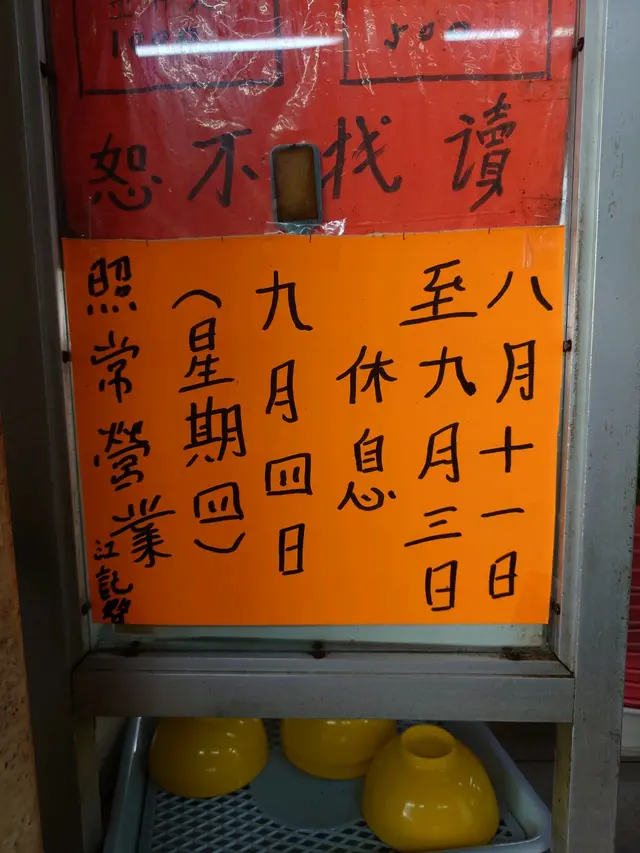 500
恕不找讀
八月十一日
至九月三日
休息
九月四日
(星期四)
照常營業
江記